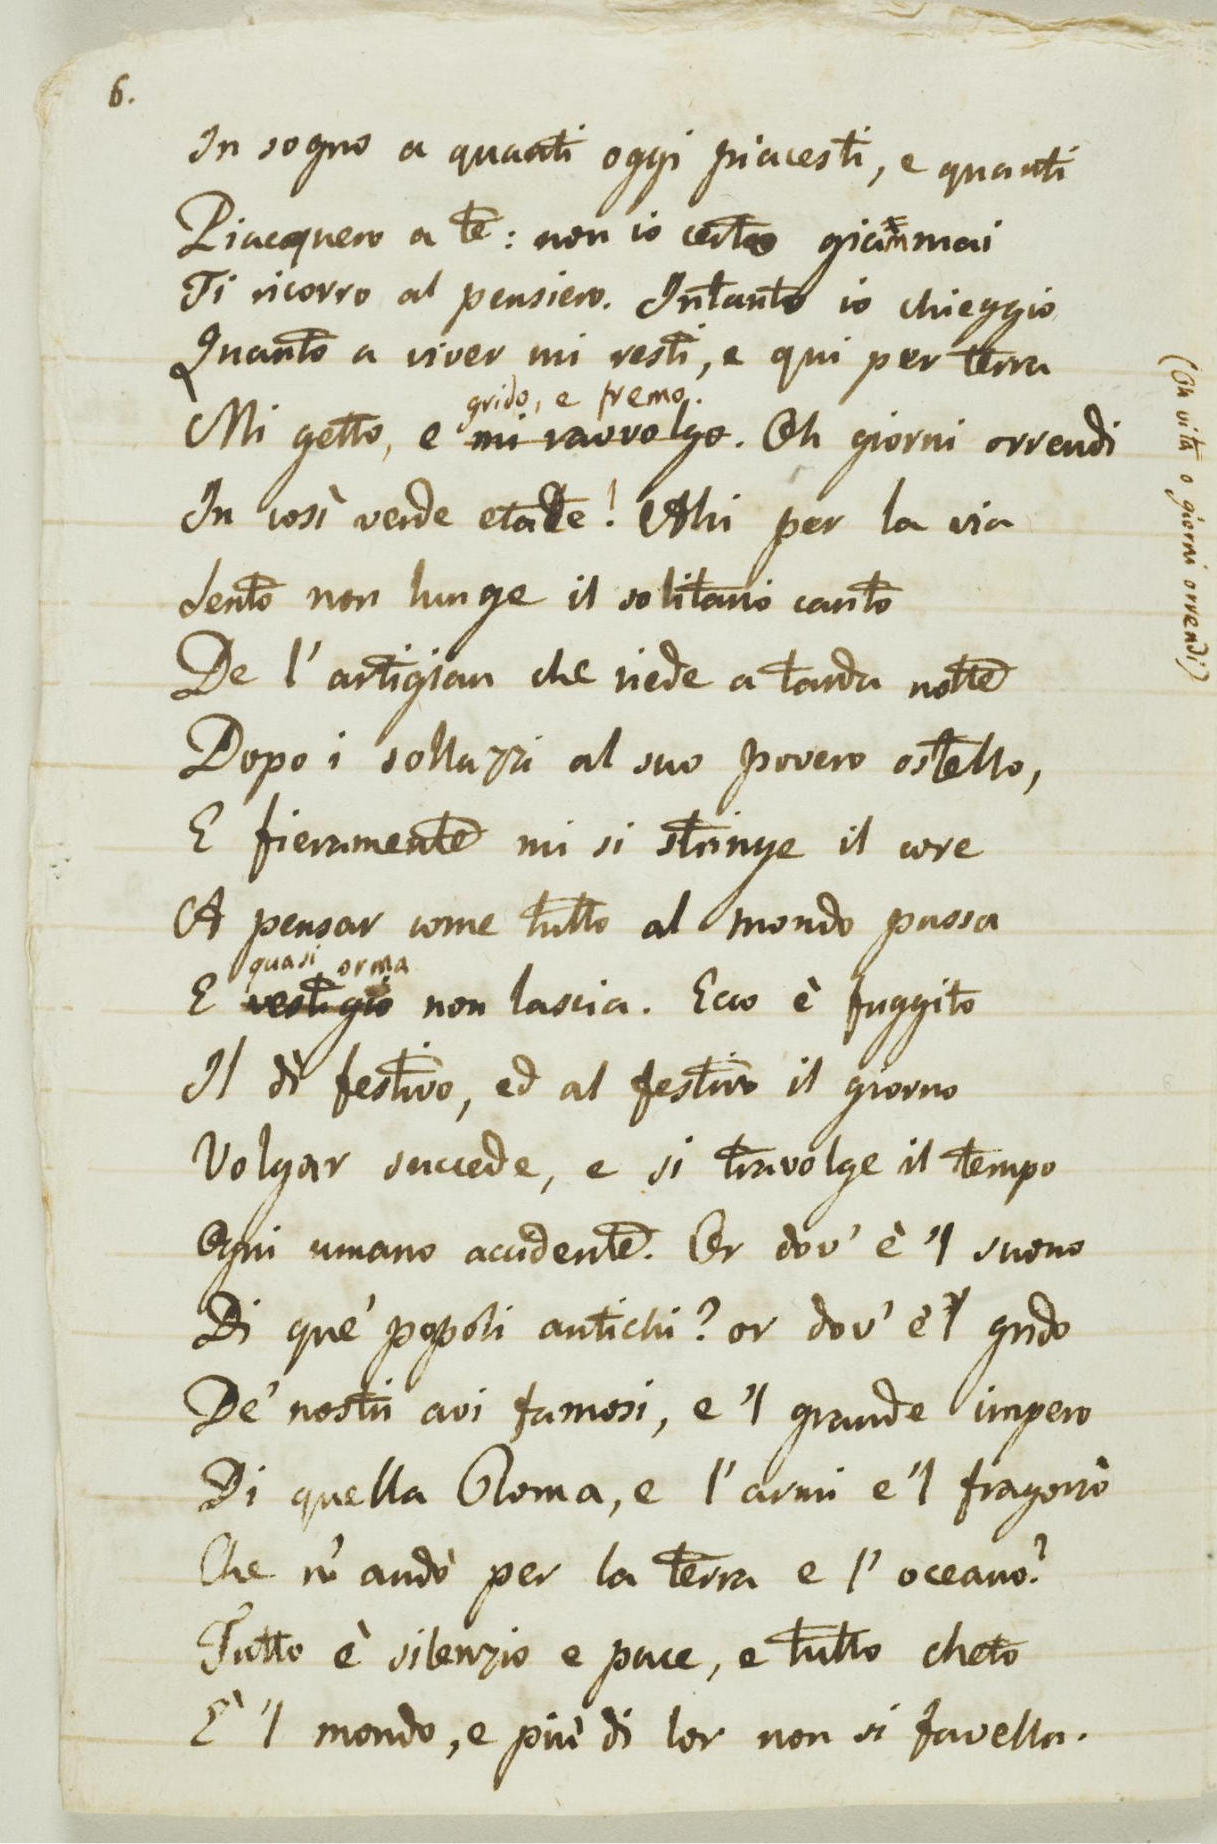 6.
In sogno a quanti oggi piacesti, e quanti
Piacquero a te: non io certo giammai
Ti ricorro al pensiero. Intanto io chieggio
Quanto a viver mi resti, e qui per terra
grido, e fremo.
Mi getto, e mi ravvolgo. Oh giorni orrendi
In così verde etate! Ahi per la via
Sento non lunge il solitario canto
De l'artigian che riede a tarda notte
Dopo i sollazzi al suo povero ostello,
E fieramente mi si stringe il core
A pensar come tutto al mondo passa
quasi orma
E vestigio non lascia. Ecco è fuggito
Il dì festivo, ed al festivo il giorno
Volgar succede, e si travolge il tempo
Ogni umano accidente. Or dov'è 'l suono
Di que' popoli antichi? or dov'è 'l grido
De' nostri avi famosi, e 'l grande impero
Di quella Roma, e l'armi e 'l fragorío
Che n'andò per la terra e l'oceano?
Tutto è silenzio e pace, e tutto cheto
È 'l mondo, e più di lor non si favella.
(Oh vita o giorni orrendi)